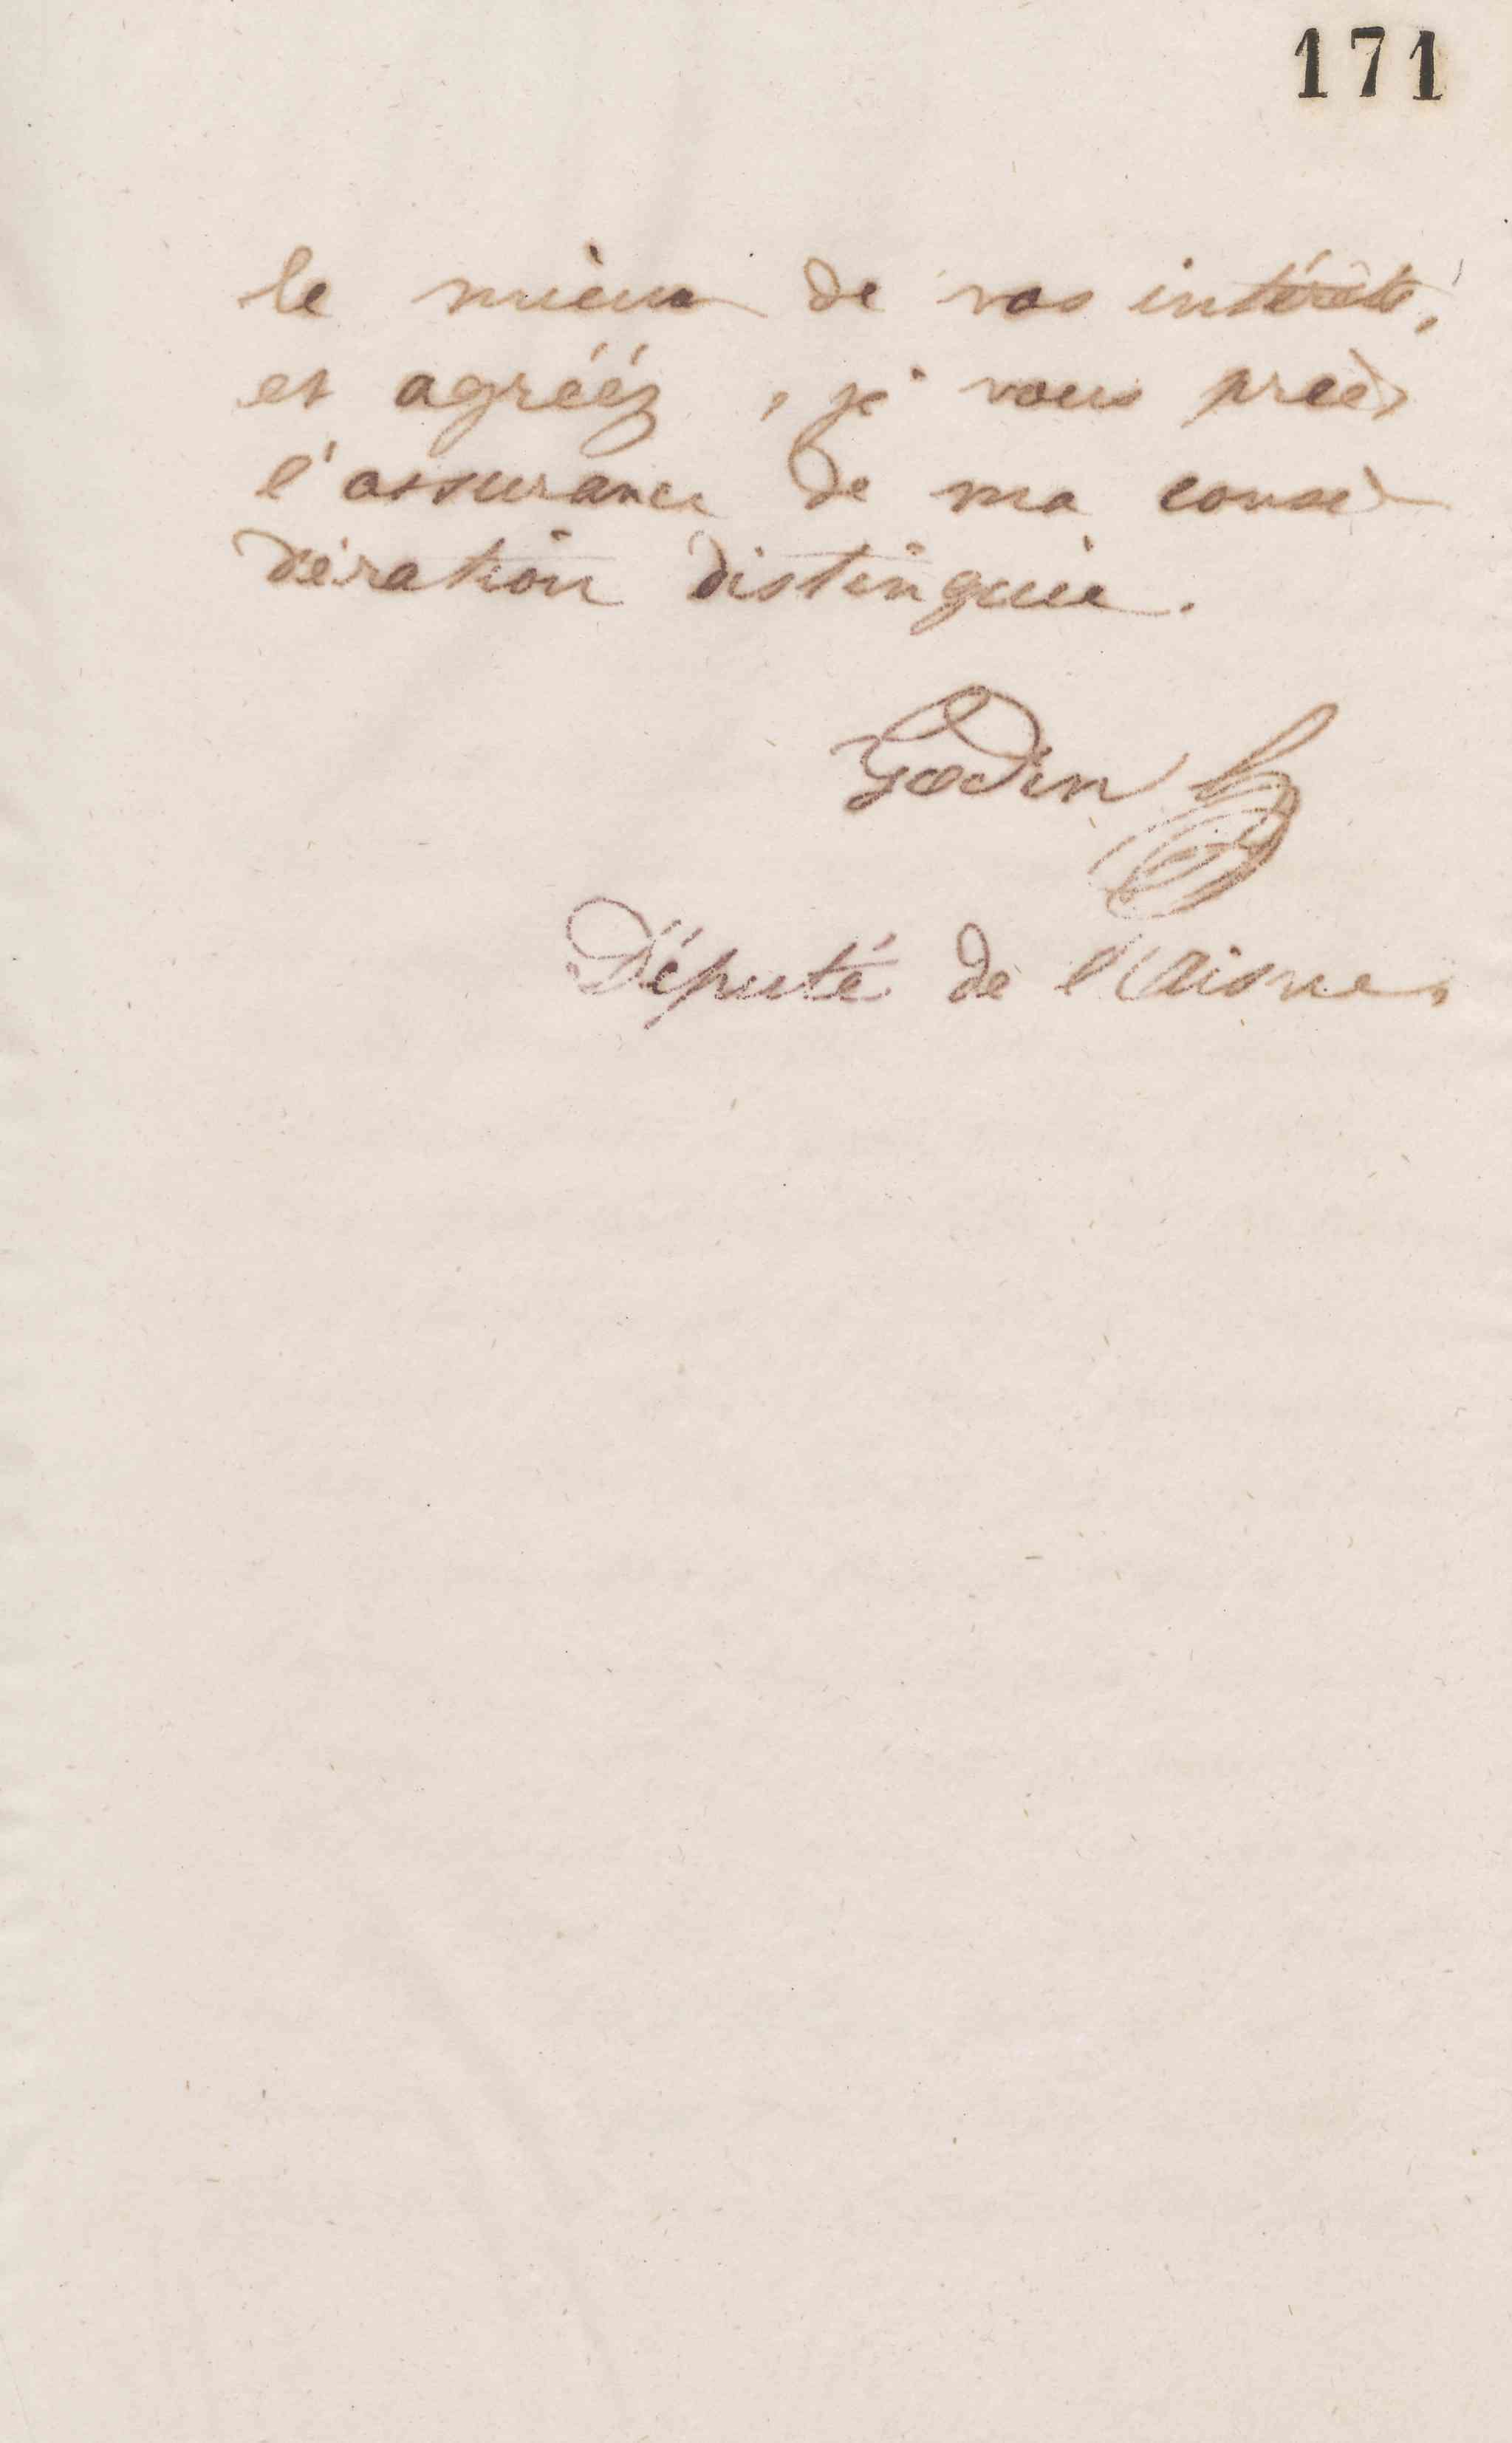 171
le mieux de vos intérêts,
et agréez, je vous prie,
l'assurance de ma consi
dération distinguée.
Godin
Député de l'Aisne.